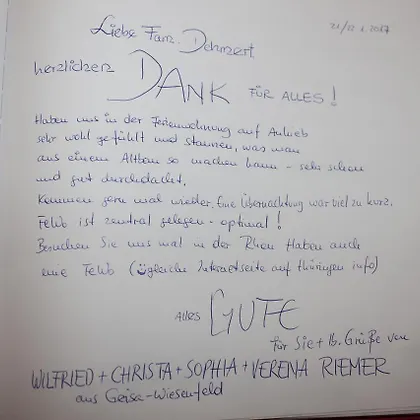 21/22.1.2017
Liebe Fam. Dehmert
herzlichen DANK FÜR ALLES!
Haben uns in der Ferienwohnung auf Anhieb
sehr wohl gefühlt und staunen, was man
aus einem Altbau so machen kann - sehr schön
und gut durchdacht.
Kommen gern mal wieder. Eine Übernachtung war viel zu kurz.
FeWo ist zentral gelegen - optimal!
Besuchen Sie uns mal in der Rhön Haben auch
eine FeWo (gleiche Internetseite auf thüringen info)
ALLES GUTE
für Sie + lb. Grüße von
WILFRIED + CHRISTA + SOPHIA + VERENA RIEMER
aus Geisa-Wiesenfeld